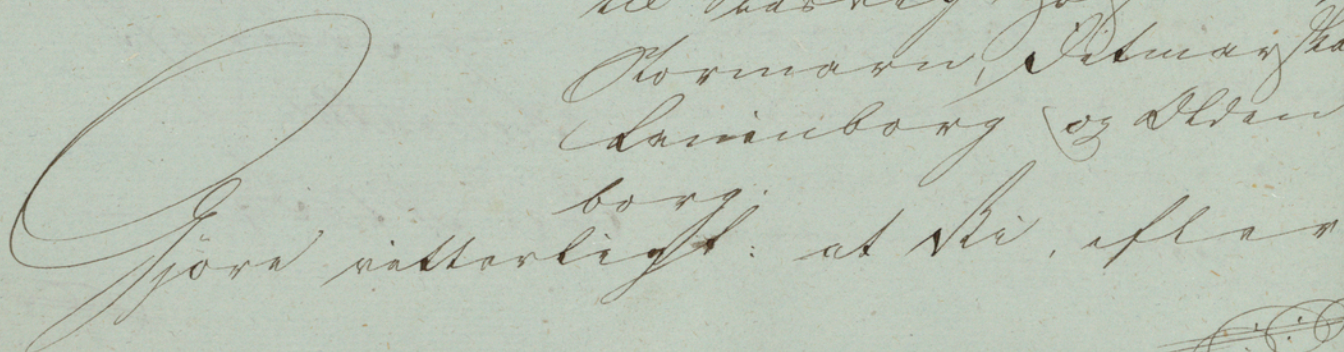 til Slesvig, Ho
Stormarn, Ditmarsken
Lauenborg og Olden
borg.
Gjöre vitterligt: at Vi, efter